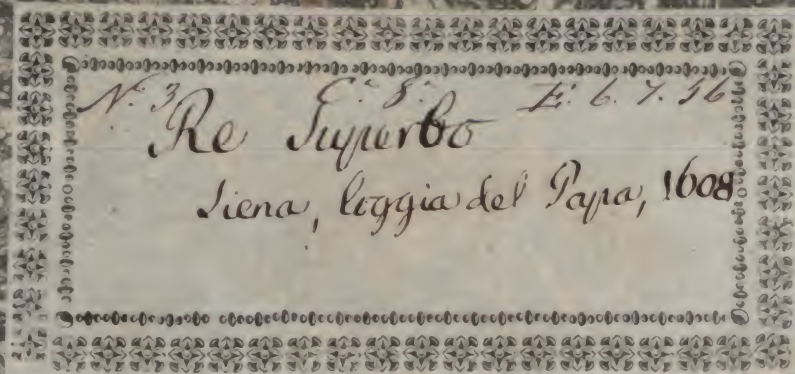 N. 3 C. 8. E. 6. 7. 56
Re Superbo
Siena, loggia del Papa, 1608